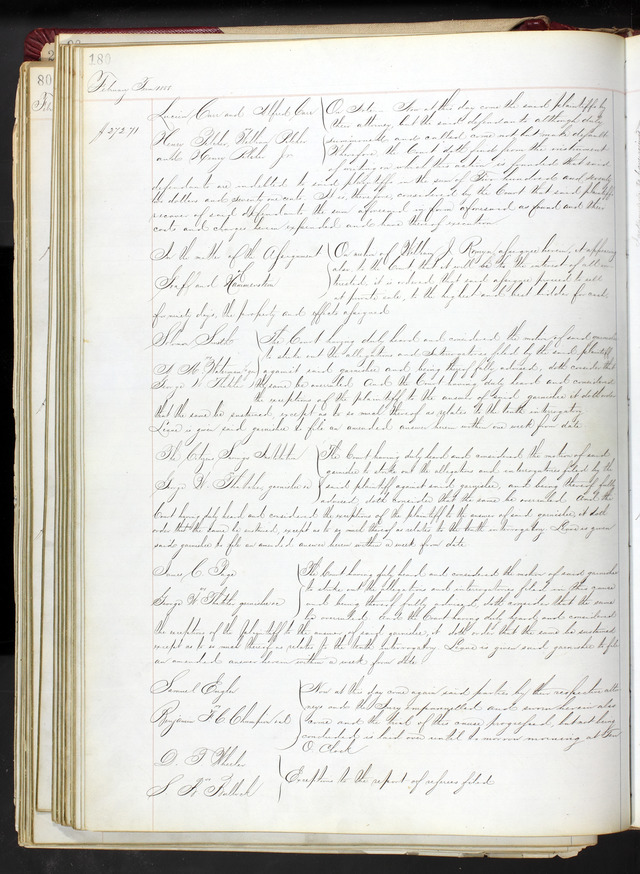 180
February Term 1858
Lucien Carr and Alfred Carr On Notes. Now at this day come the said plaintiffs by
their attorney but the said defendants although duly
$272.71 Henry Blake,
and Henry Blake Jr
summoned and called come not but make default
Therefore the Court doth find from the instrument
of writing on which the action is founded that said
defendants are indebted to said plaintiffs in the sum of Two hundred and seventy
two dollars and seventy one cents. It is, therefore, considered by the Court that said plaintiffs
recover of said defendants the sum aforesaid in form aforesaid as found and their
costs and charges herein expended and have thereof execution.
In the matter of the Assignment On motion of assignee herein, it appearing
also to the Court that it will be to the interest of all con-
and Hammerstein
cerned, it is ordered that said assignee proceed to sell
at private sale, to the highest and best bidder for cash
for ninety days, the property and effects assigned
The Court having duly heard and considered the motion of said garnishee
to strike out the allegations and Interrogatories filed by the said plaintiff
vs
against said garnishee and being thereof fully advised, doth consider that
George W. the same be overruled. And the Court having duly heard and considered
the exceptions of the plaintiff to the answer of said garnishee it doth order
that the same be sustained, except as to so much thereof as relates to the tenth interrogatory
Leave is given said garnishee to file an amended answer herein within one week from date.
The Citizens Savings Institution The Court having duly heard and considered the motion of said
garnishee to strike out the allegations and interrogatories filed by the
George W. garnishee said plaintiff against said garnishee, and being thereof fully
advised, doth consider that the same be overruled. And the
Court having duly heard and considered the exceptions of the plaintiff to the answer of said garnishee, it doth
order that the same be sustained, except as to so much thereof as relates to the tenth interrogatory. Leave is given
said garnishee to file an amended answer herein within a week from date
James C. Page The Court having duly heard and considered the motion of said garnishee
to strike out the allegations and interrogatories filed in this cause
George W. garnishee and being thereof fully advised, doth consider that the same
be overruled. And the Court having duly heard and considered
the exceptions of the plaintiff to the answer of said garnishee, it doth order that the same be sustained
except as to so much thereof as relates to the tenth Interrogatory. Leave is given said garnishee to file
an amended answer herein within a week from date.
Samuel Engler Now at this day come again said parties by their respective attor-
neys and the Jury empannelled and sworn herein also
vs
Benjamin F. et al
came and the trial of this cause progressed, but not being
concluded is laid over until to morrow morning at Ten
O Clock
D. T. Wheeler
vs Exceptions to the report of referees filed
S. Bullock